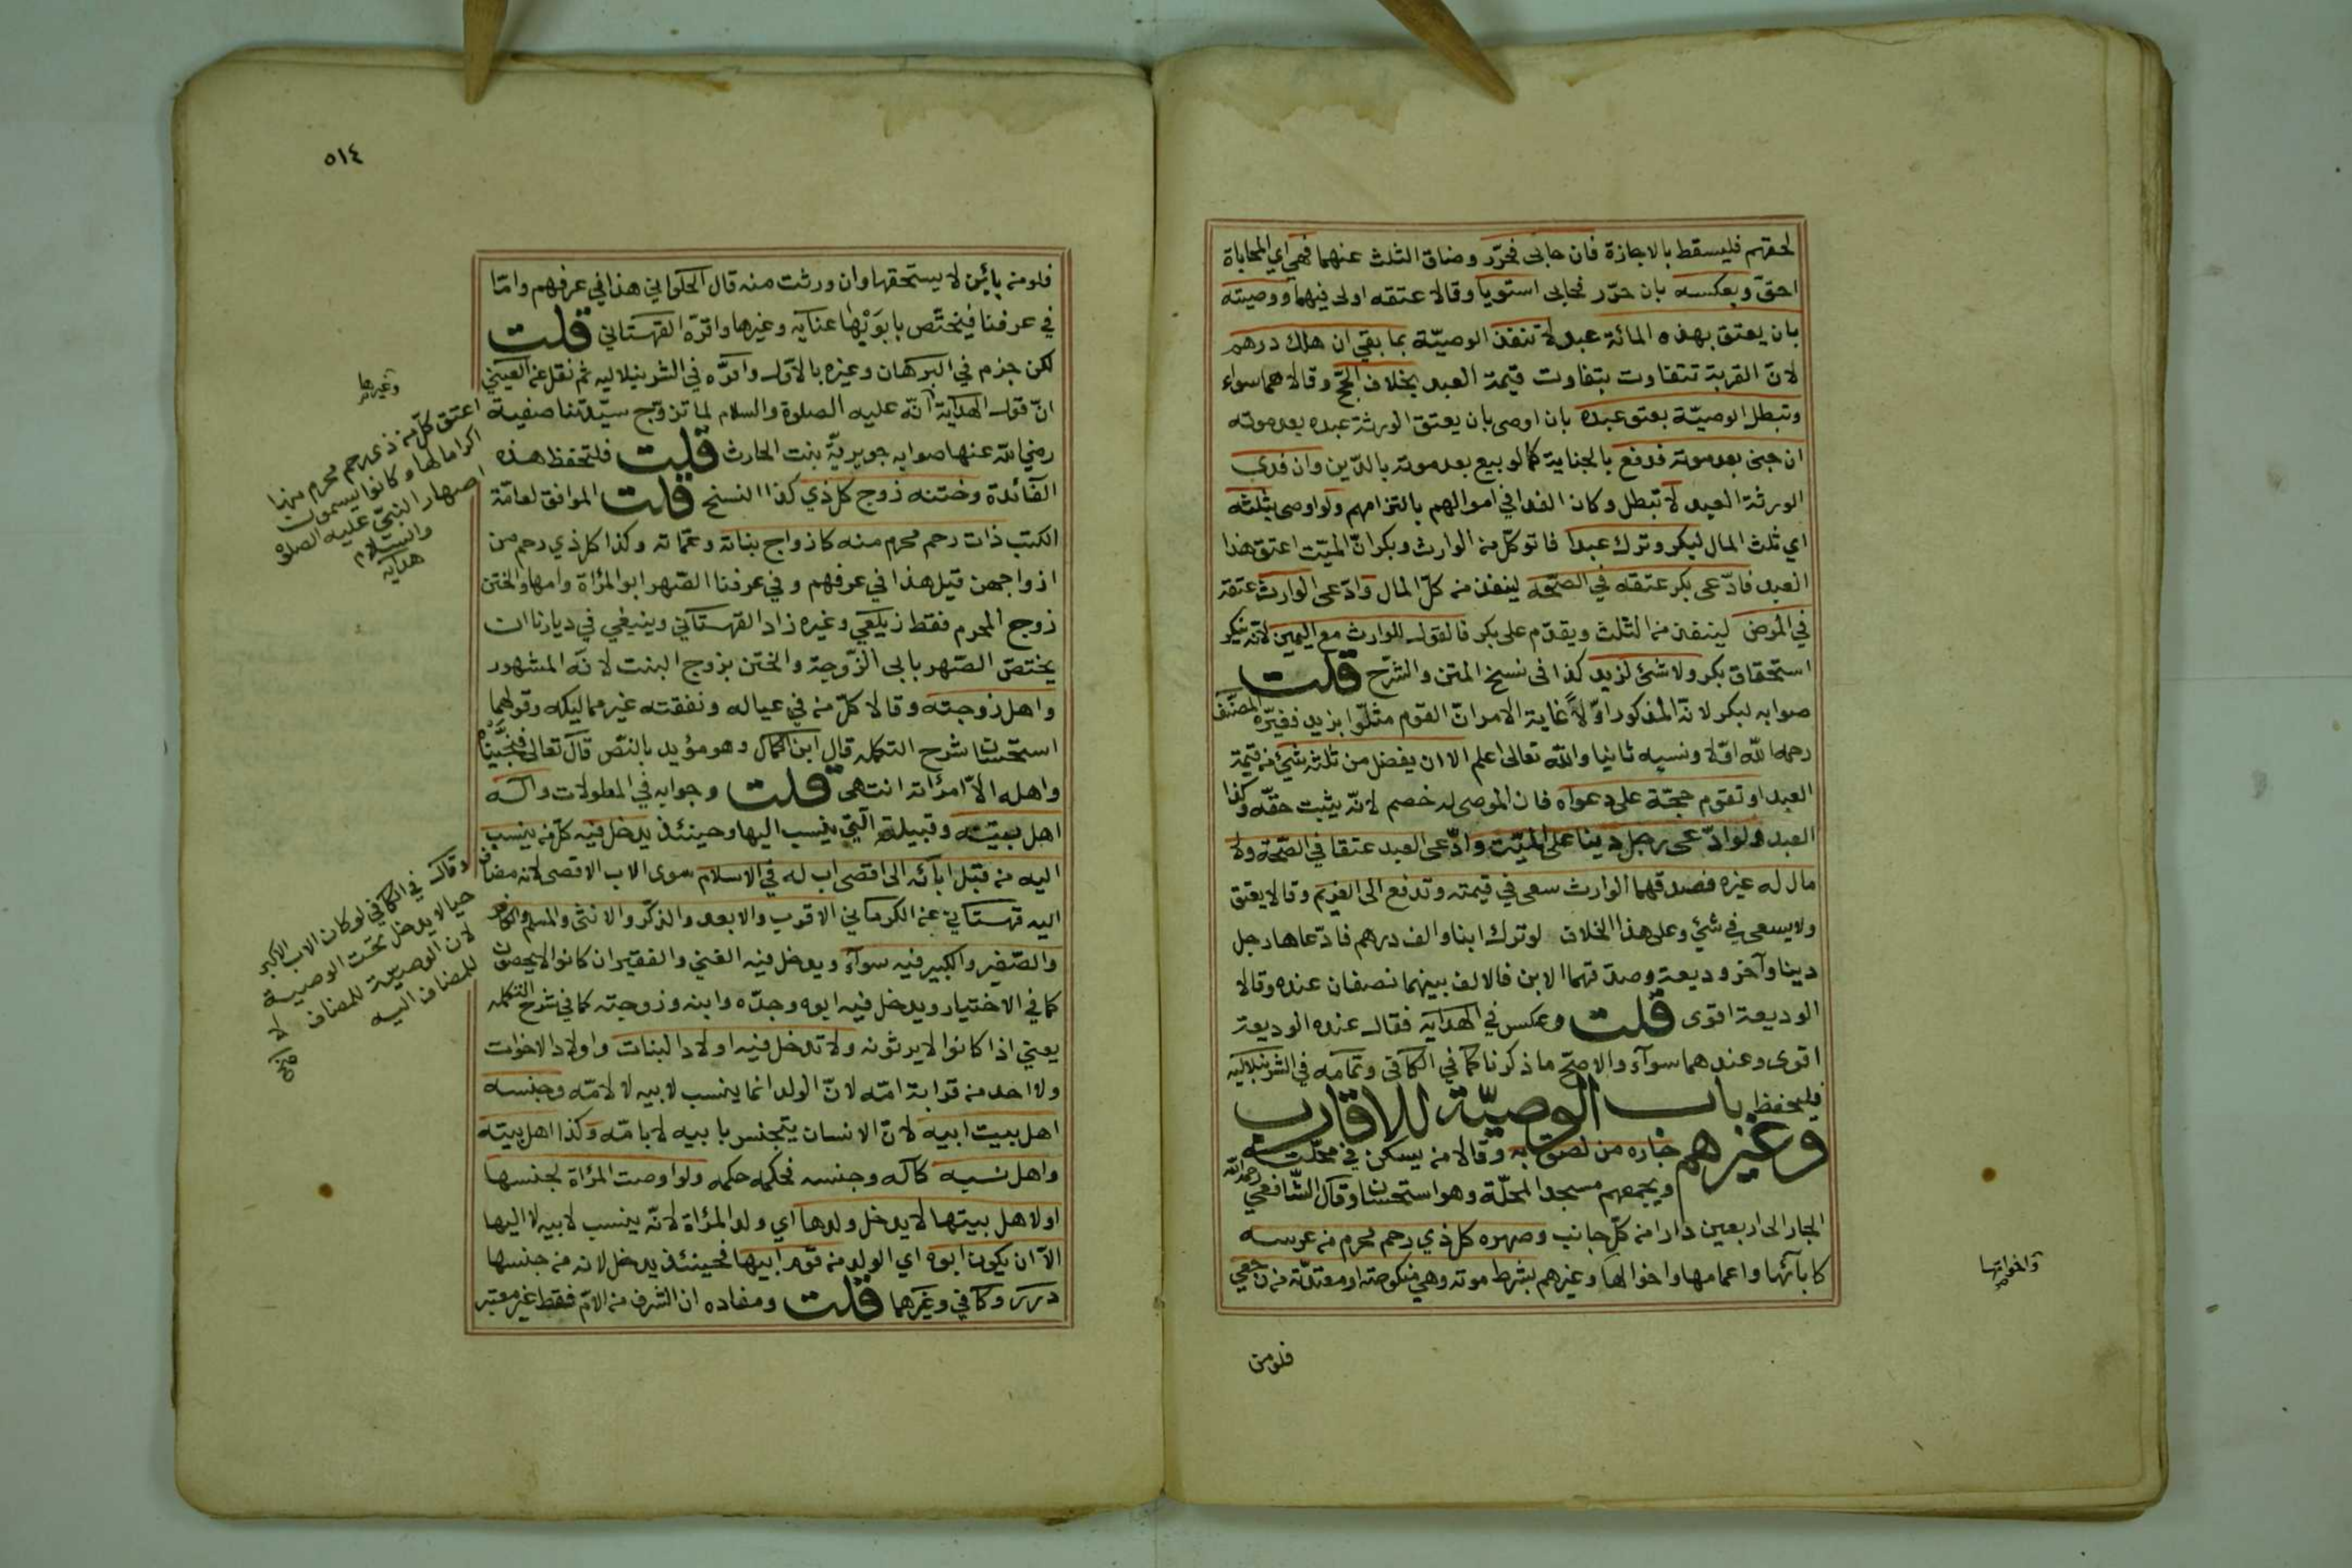 لحقهم فليسقط بالاجازة فان حابى فحرّر وضاق الثلث عنهما فهي اي المحاباة
احقّ وبعكسه بان حرّر فحابى استويا وقالا عتقه اولى فيهما ووصيته
بان يعتق بهذه المائة عبد لا تنفذ الوصيّة بما بقي ان هلك درهم
لانّ القربة تتفاوت بتفاوت قيمة العبد بخلاف الحجّ وقالا هما سواء
وتبطل الوصيّة بعتق عبده بان اوصى بان يعتق الورثة عبده بعد موته
ان جنى بعد موته فدفع بالجناية كما لو بيع بعد موته بالدّين وان فدى
الورثة العبد لا تبطل وكان الفدا في اموالهم بالتزامهم ولو اوصى بثلثه
اي ثلث المال لبكر وترك عبدا فاتو كلّ من الوارث وبكر انّ الميّت اعتق هذا
العبد فادّعى بكر عتقه في الصّحة لينفذ من كلّ المال وادّعى الوارث عتقه
في المرض لينفذ من الثلث ويقدّم على بكر فالقول للوارث مع اليمين لانّه ينكر
استحقاق بكر ولا شئ لزيد كذا فى نسخ المتن والشّرح قلت
صوابه لبكر لانّه المذكور اوّلاً غاية الامر انّ القوم مثلّوا بزيد فغيّره المصنّف
رحمه اللّه اوّلا ونسيه ثانيا واللّه تعالى اعلم الا ان يفضل من ثلثه شئ من قيمة
العبد او تقوم حجّة على دعواه فان الموصى له خصم لانّه يثبت حقّه وكذا
العبد ولو ادّعى رجل دينا على الميّت وادّعى العبد عتقا في الصّحة ولا
مال له غيره فصدقهما الوارث سعى في قيمته وتدفع الى الغريم وقالا يعتق
ولا يسعى في شئ وعلى هذا الخلاف لو ترك ابنا والف درهم فادّعاها رجل
دينا وآخر وديعة وصدّقهما الابن فالالف بينهما نصفان عنده وقالا
الوديعة اقوى قلت وعكس في الهداية فقال عنده الوديعة
اقوى وعندهما سوآء والاصحّ ما ذكرنا كما في الكافي وتمامه في الشرنبلاليه
فليحفظ باب الوصيّة للاقارب
وغيرهم جاره من لصق به وقالا من يسكن في محلّته
ويجمعهم مسجد المحلّة وهو استحسان وقال الشّافعي رحمه الله
الجار الى اربعين دارا من كلّ جانب وصهره كل ذي رحم محرم من عرسه
كابآئها واعمامها واخوالها وغيرهم بشرط موته وهي منكوحته او معتدّته من رجعي
واخواتها
صح
فلو من
٥١٤
فلو من بائن لا يستحقها وان ورثت منه قال الحلواني هذا في عرفهم وامّا
في عرفنا فيختّص بابوَيْها عنايه وغيرها واقرّه القهستاني قلت
لكن جزم في البرهان وغيره بالاوّل واقرّه في الشرنبلاليه ثم نقل عن العيني
انّ قول الهداية انّه عليه الصلوة والسلام لما تزوّج سيّدتنا صفية
رضي الله عنها صوابه جويريّة بنت الحارث قلت فلتحفظ هذه
الفآئدة وختنه زوج كل ذي كذا النسخ قلت الموافق لعامّة
الكتب ذات رحم محرم منه كازواج بناته وعمّاته وكذا كل ذي رحم من
ازواجهن قيل هذا في عرفهم وفي عرفنا الصّهر ابو المرأة وامها والختن
زوج المحرم فقط زيلعي وغيره زاد القهستاني وينبغي في ديارنا ان
يختصّ الصّهر بابى الزّوجة والختن بزوج البنت لانّه المشهور
واهل زوجته وقالا كلّ من في عياله ونفقته غير مماليكه وقولهما
استحسان شرح التكمله قال ابن الكمال وهو مؤيد بالنصّ قال تعالى فنجّيناه
واهله الاّ امرأته انتهى قلت وجوابه في المطولات وآله
اهل بيته وقبيلته الّتي ينسب اليها وحينئذ يدخل فيه كل من ينسب
اليه من قبل ابائه الى اقصى اب له في الاسلام سوى الاب الاقصى لانه مضاف
اليه قهستاني عن الكرماني الاقرب والابعد والذكر والانثى والمسلم والكافر
والصّغير والكبير فيه سوآء ويدخل فيه الغني والفقير ان كانوا لا يحصون
كما في الاختيار ويدخل فيه ابوه وجدّه وابنه وزوجته كما في شرح التكمله
يعني اذا كانوا لا يرثونه ولا تدخل فيه اولاد البنات واولاد الاخوات
ولا احد من قرابة امّه لانّ الولد انما ينسب لابيه لا لامّه وجنسه
اهل بيت ابيه لانّ الانسان يتجنس بابيه لا بامّه وكذا اهل بيته
واهل نسبه كاله وجنسه فحكمه حكمه ولو اوصت المرأة لجنسها
او لاهل بيتها لا يدخل ولدها اي ولد المرأة لانّه ينسب لابيه لا اليها
الاّ ان يكون ابوه اي الولد من قوم ابيها فحينئذ يدخل لانه من جنسها
درر وكافي وغيرهما قلت ومفاده ان الشرف من الامّ فقط غير معتبر
وغيرها
اعتق كلّ من ذي رحم محرم منها
اكراما لها وكانوا يسمون
اصهار النبيّ عليه الصلوة
والسلام
هدايه
وقال في الكافي لو كان الاب الاكبر
حيا لا يدخل تحت الوصية
لان الوصية للمضاف لا
للمضاف اليه